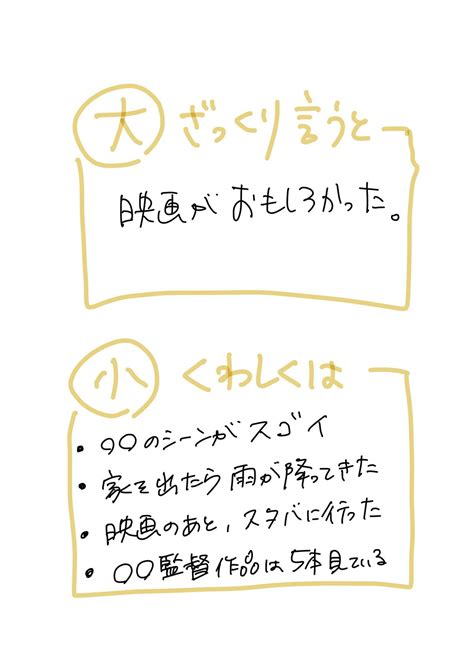 大 ざっくり言うと
映画がおもしろかった。
小 くわしくは
・〇〇のシーンがスゴイ
・家を出たら雨が降ってきた
・映画のあと、スタバに行った
・〇〇監督作品は5本見ている